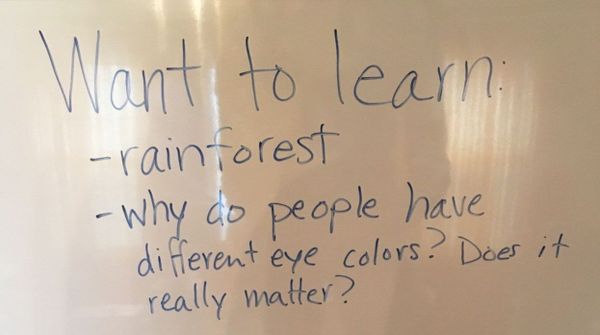 Want to learn:
-rainforest
-why do people have
different eye colors? Does it
really matter?